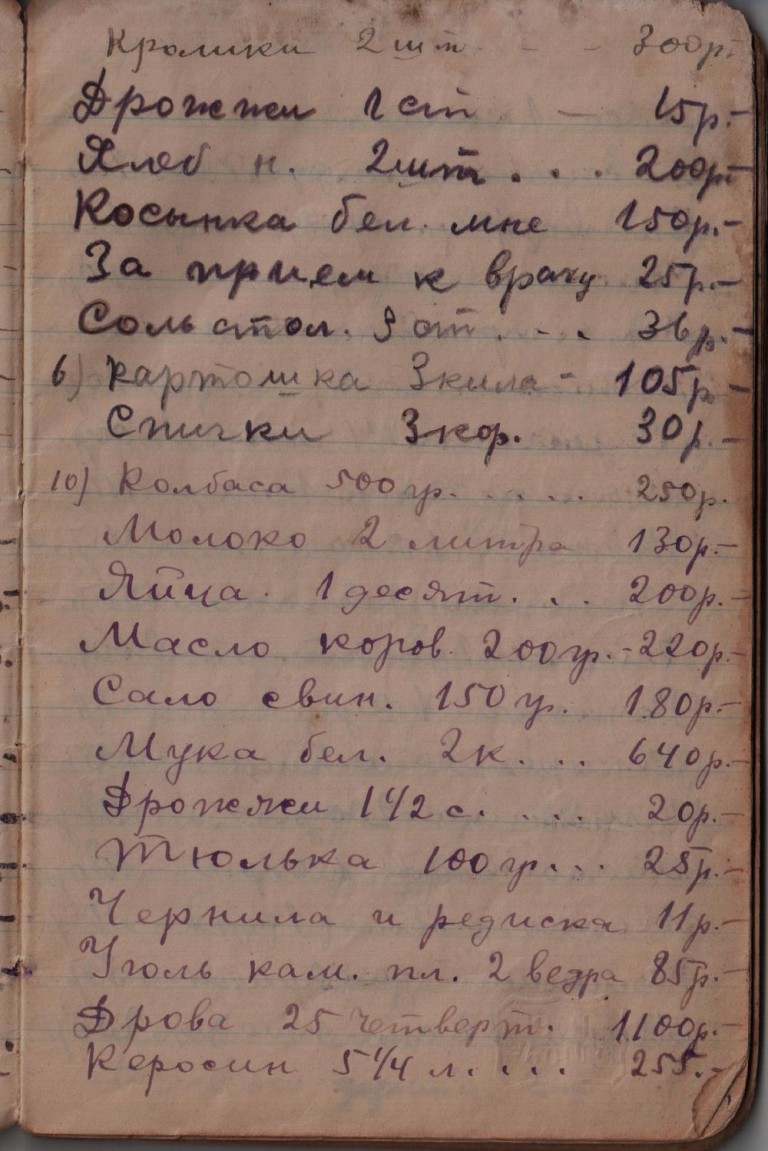 Кролики 2 шт. - - 300р.
Дрожжи 1 ст - 15р.-
Хлеб н. 2 шт. . . 200р-
Косынка бел. мне 150р.-
За прием к врачу 25р.-
Соль стол. 3 ст. . - . 36р.-
6) Картошка 3 кила - 105р-
Спички 3 кор. 30р.-
10) Колбаса 500 гр. . . . . 250р.
Молоко 2 литра 130р.-
Яйца. 1 десят. . . 200р.-
Масло коров. 200 гр. - 220р.-
Сало свин. 150 гр. 180р.-
Мука бел. 2 к. . . 640р.-
Дрожжи 1 1/2 с. . . . 20р.-
Тюлька 100 гр. . . 25р.-
Чернила и редиска 11р.-
Уголь кам. пл. 2 ведра 85р.-
Дрова 25 четверт. 1100р.-
Керосин 5 1/4 л. . . . 255.-